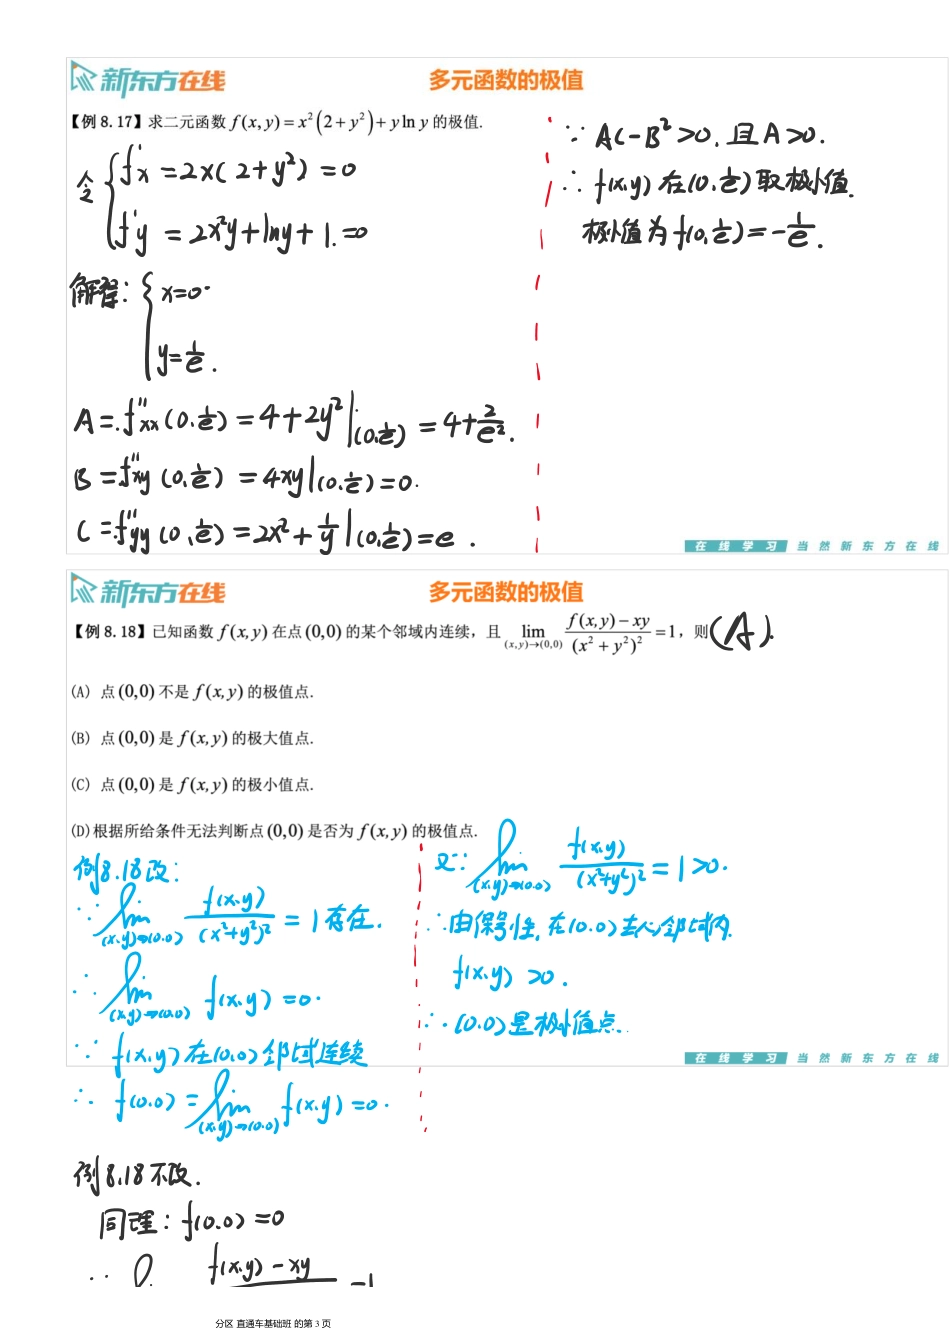 新东方在线
多元函数的极值
【例 8.17】求二元函数 f(x,y)=x²(2+y²)+y ln y 的极值.
令 { f'x = 2x(2+y²) = 0
f'y = 2x²y+lny+1.=0
解得: { x=0
y=1/e.
A=f''xx(0.1/e)=4+2y²|(0.1/e)=4+2/e².
B=f''xy(0.1/e)=4xy|(0.1/e)=0.
C=f''yy(0.1/e)=2x²+1/y|(0.1/e)=e.
∵ AC-B²>0. 且A>0.
∴ f(x.y)在(0.1/e)取极小值.
极小值为f(0.1/e)=-1/e.
在线学习 当然新东方在线
新东方在线
多元函数的极值
【例 8.18】已知函数 f(x,y) 在点 (0,0) 的某个邻域内连续，且 lim (x,y)→(0,0) (f(x,y)-xy)/(x²+y²)² =1，则(A).
(A) 点 (0,0) 不是 f(x,y) 的极值点.
(B) 点 (0,0) 是 f(x,y) 的极大值点.
(C) 点 (0,0) 是 f(x,y) 的极小值点.
(D)根据所给条件无法判断点 (0,0) 是否为 f(x,y) 的极值点.
例8.18改:
∵ lim (x.y)→(0.0) f(x.y)/(x²+y²)² = 1存在.
∴ lim (x.y)→(0.0) f(x.y)=0.
∵ f(x.y)在(0.0)邻域连续
∴ f(0.0)=lim (x.y)→(0.0) f(x.y)=0.
又∵ lim (x.y)→(0.0) f(x.y)/(x²+y²)² = 1>0.
∴由保号性,在(0.0)去心邻域内.
f(x.y)>0.
∴(0.0)是极小值点.
在线学习 当然新东方在线
例8.18不改.
同理: f(0.0)=0
f(x.y)-xy
分区 直通车基础班 的第 3 页